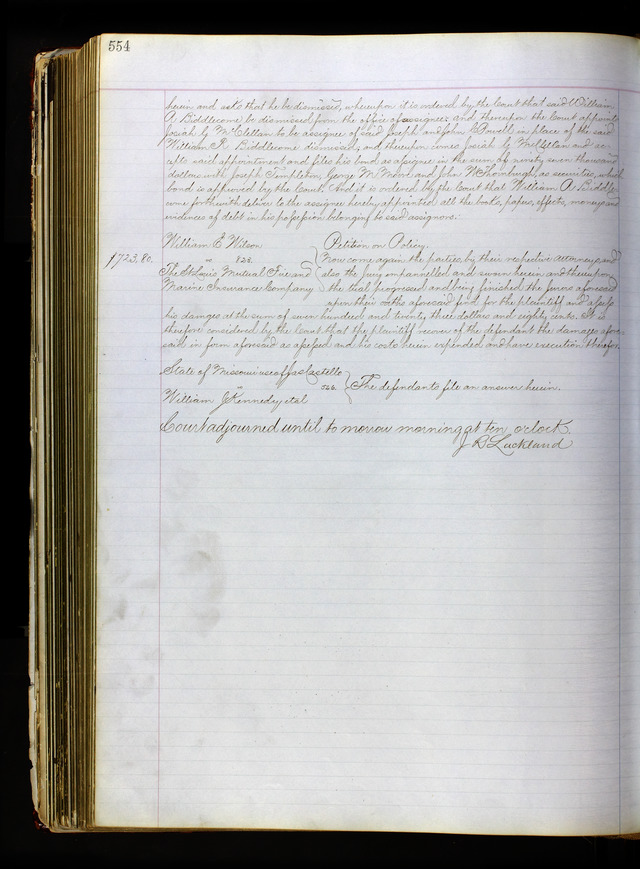 554
herein and asks that he be dismissed, whereupon it is ordered by the Court that said William
A Biddlecome be dismissed from the office of assignee; and thereupon the Court appoints
Josiah G McClellan to be assignee of said Joseph and John Powell in place of the said
William A. Biddlecome dismissed, and thereupon comes Josiah G McClellan and ac-
cepts said appointment and files his bond as assignee in the sum of ninety seven thousand
dollars with Joseph Templeton, George M. Moore and John Thornburgh, as securities, which
bond is approved by the Court. And it is ordered by the Court that William A Biddle-
come forthwith deliver to the assignee hereby appointed all the books, papers, effects, moneys and
evidences of debt in his possession belonging to said assignors.
William E Wilson } Petition on Policy.
$723.80. vs 123. Now come again the parties by their respective attorneys, and
The St Louis Mutual Fire and also the jury empannelled and sworn herein and thereupon
Marine Insurance Company the trial progressed and being finished the jurors aforesaid
upon their oaths aforesaid find for the plaintiff and assess
his damages at the sum of seven hundred and twenty three dollars and eighty cents. It is
therefore considered by the Court that the plaintiff recover of the defendant the damages afore-
said in form aforesaid as assessed and his costs herein expended and have execution therefor.
State of Missouri use of Jas Castello
vs } The defendants file an answer herein.
William J Kennedy et al
Court adjourned until to morrow morning at ten o'clock.
J R Lackland